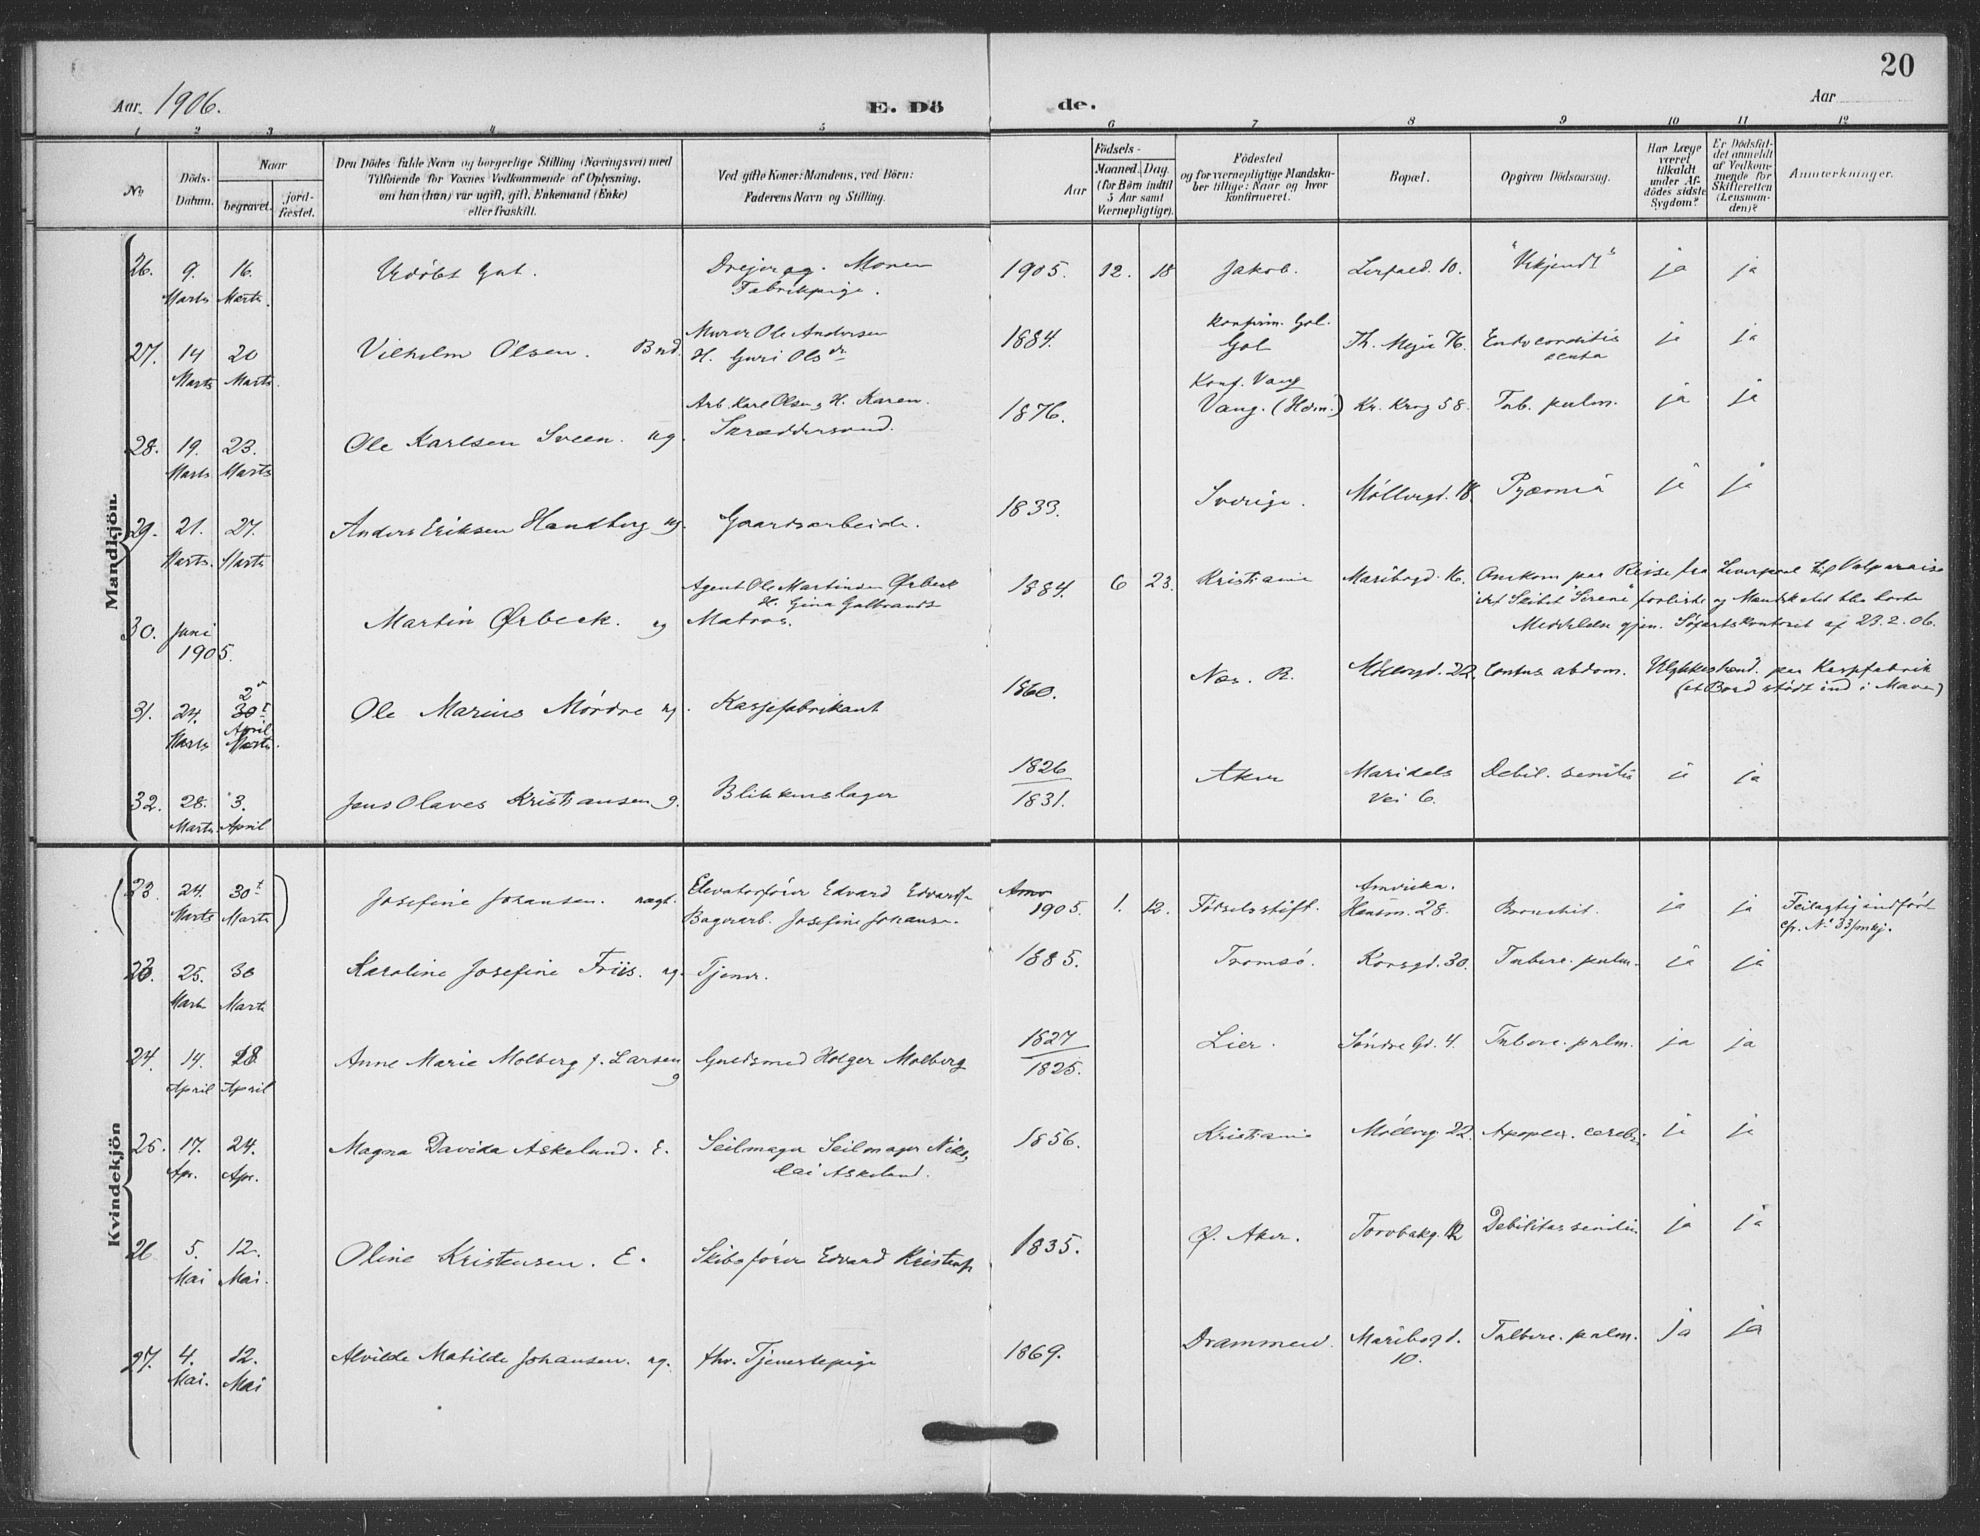 20
Aar 1906.
E. Dö
de.
Aar
1 2 3 4 5 6 7 8 9 10 11 12
No
Döds-Datum.
Naar
begravet.
jord-fæstet.
Den Dödes fulde Navn og borgerlige Stilling (Næringsvei) med
Tilföiende for Voxnes Vedkommende af Oplysning,
om han (hun) var ugift, gift, Enkemand (Enke)
eller fraskilt.
Ved gifte Koner: Mandens, ved Börn:
Faderens Navn og Stilling.
Födsels-
Aar
Maaned. Dag.
(for Börn indtil
5 Aar samt
Værnepligtige).
Födested
og for værnepligtige Mandska-
ber tillige: Naar og hvor
konfirmeret.
Bopæl.
Opgiven Dödsaarsag.
Har Læge
været
tilkaldt
under Af-
dödes sidste
Sygdom?
Er Dödsfal-
det anmeldt
af Vedkom-
mende for
Skifteretten
(Lensman-
den)?
Anmerkninger.
Mandkjön.
26. 9. Marts 16. Marts. Udøbt Gut. Drejer og. Moren
Fabrikpige.
1905. 12. 18 Jakob. Lerfald. 10. "Ukjendt" ja ja
27. 14 Marts 20 Marts. Vilhelm Olsen. Murer Ole Andersen
H. Guri Olsdr
1884. Konfirm. Gol.
Gol Th. Meyer 76. Endocarditis
acuta ja ja
28. 19. Marts 23. Marts Ole Karlsen Sveen. ug. Arb. Karl Olsen, H. Karen.
Skræddersvend.
1876. Konf. Vang
Vang. (Hedm.) Kr. Krog 58. Tub. pulm. ja ja
29. 21. Marts. 27. Marts Anders Eriksen Handberg ug. Gaardsarbeider.
1833. Sverige. Møllergd. 18. Pyæmia ja ja
30. Juni
1905. Martin Ørbeck. ug Agent Ole Martinsen Ørbeck
H. Gina Gulbrands
Matros.
1884. 6 23. Kristiania Maribogd. 16. Omkom paa Reise fra Liverpool til Valparaiso
idet Skibet Sirene forliste og Mandskabet blev borte
Meddelelse gjen. Søfartskontoret af 23.2.06.
31. 24. Marts 2 30t April Marts. Ole Marius Mørdre ug. Kassefabrikant
1860. Næs. R. Møllergd. 22. Contus. abdom. Ulykkeshænd. paa Kassefabrik
(et Bord stødt ind i Maven)
32. 28. Marts 3. April Jens Olaves Kristiansen g. Blikkenslager
1826
1831. Aker Maridals
Vei 6. Debil. senilis ja ja
Kvindekjön
(23. 24. Marts 30t Marts) Josefine Johansen. uægt. Elevatorfører Edvard Edvards.
Bagerarb. Josefine Johanse.
1905. 1. 12. Fødselsstift. Amerika.
Hausm. 28. Bronchit. ja ja Feilagtig indført
cfr. No 33 mkj.
23. 25. Marts 30 Marts Karoline Josefine Friis. ug. Tjener.
1885. Tromsø. Korsgd. 30. Tuberc. pulm. ja ja
24. 14. April 28 April Anne Marie Molberg f. Larsen
g Guldsmed Holger Molberg
1827
1825. Lier. Søndre Gd. 4. Tuberc. pulm. ja ja
25. 17. Apr. 24. Apr. Magna Davida Askelund. E. Seilmager Seilmager Niko-
lai Askelund.
1856. Kristiania Møllerg. 22. Apoplex. cerebr. ja ja
26 5. Mai 12. Mai. Oline Kristensen. E. Skibsfører Edvard Kristens.
1835. Ø. Aker. Torvbakg. 12 Debilitas senilis ja ja
27. 4. Mai. 12. Mai Alvilde Matilde Johansen. ug. fhv. Tjenestepige
1869. Drammen. Maribogd.
10. Tuberc. pulm. ja ja